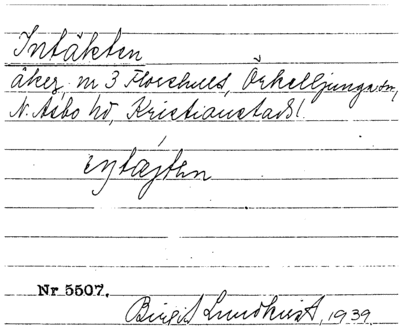 Intäkten
åker, nr 3 Floxhult, Örkelljunga sn,
N. Åsbo hd, Kristianstads l.
Nr 5507.
Birgit Lundkvist, 1939